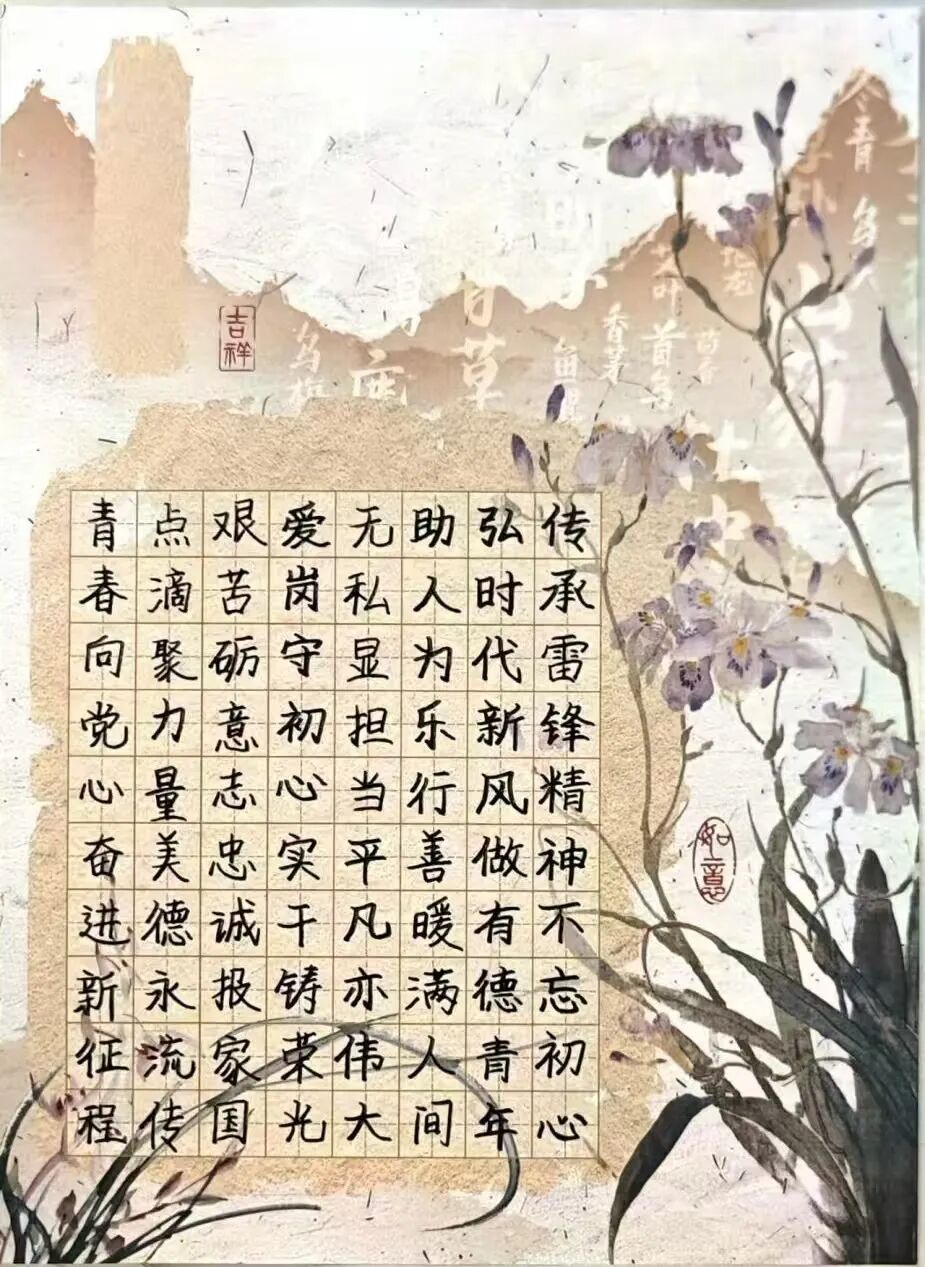 传承雷锋精神不忘初心
弘时代新风做有德青年
助人为乐行善暖满人间
无私显担当平凡亦伟大
爱岗守初心实干铸荣光
艰苦砺意志忠诚报家国
点滴聚力量美德永流传
青春向党心奋进新征程
吉祥
如意
冬青
香薷
首乌
茴香
甘草
乌梅
地龙
山药